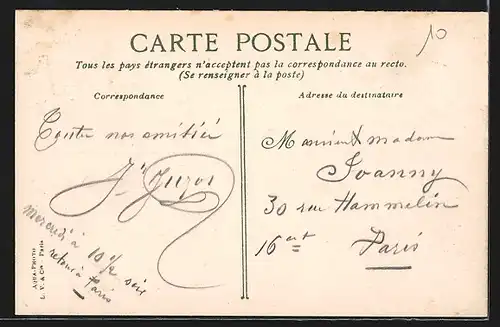 10
CARTE POSTALE
Tous les pays étrangers n'acceptent pas la correspondance au recto.
(Se renseigner à la poste)
Correspondance
Adresse du destinataire
Toutes nos amitiés
Mercredi à 10 1/2 soir
retour à Paris
Monsieur & madame
Joanny
30 rue Hammelin
16 art
Paris
AQUA-PHOTO
L. V. & Cie Paris